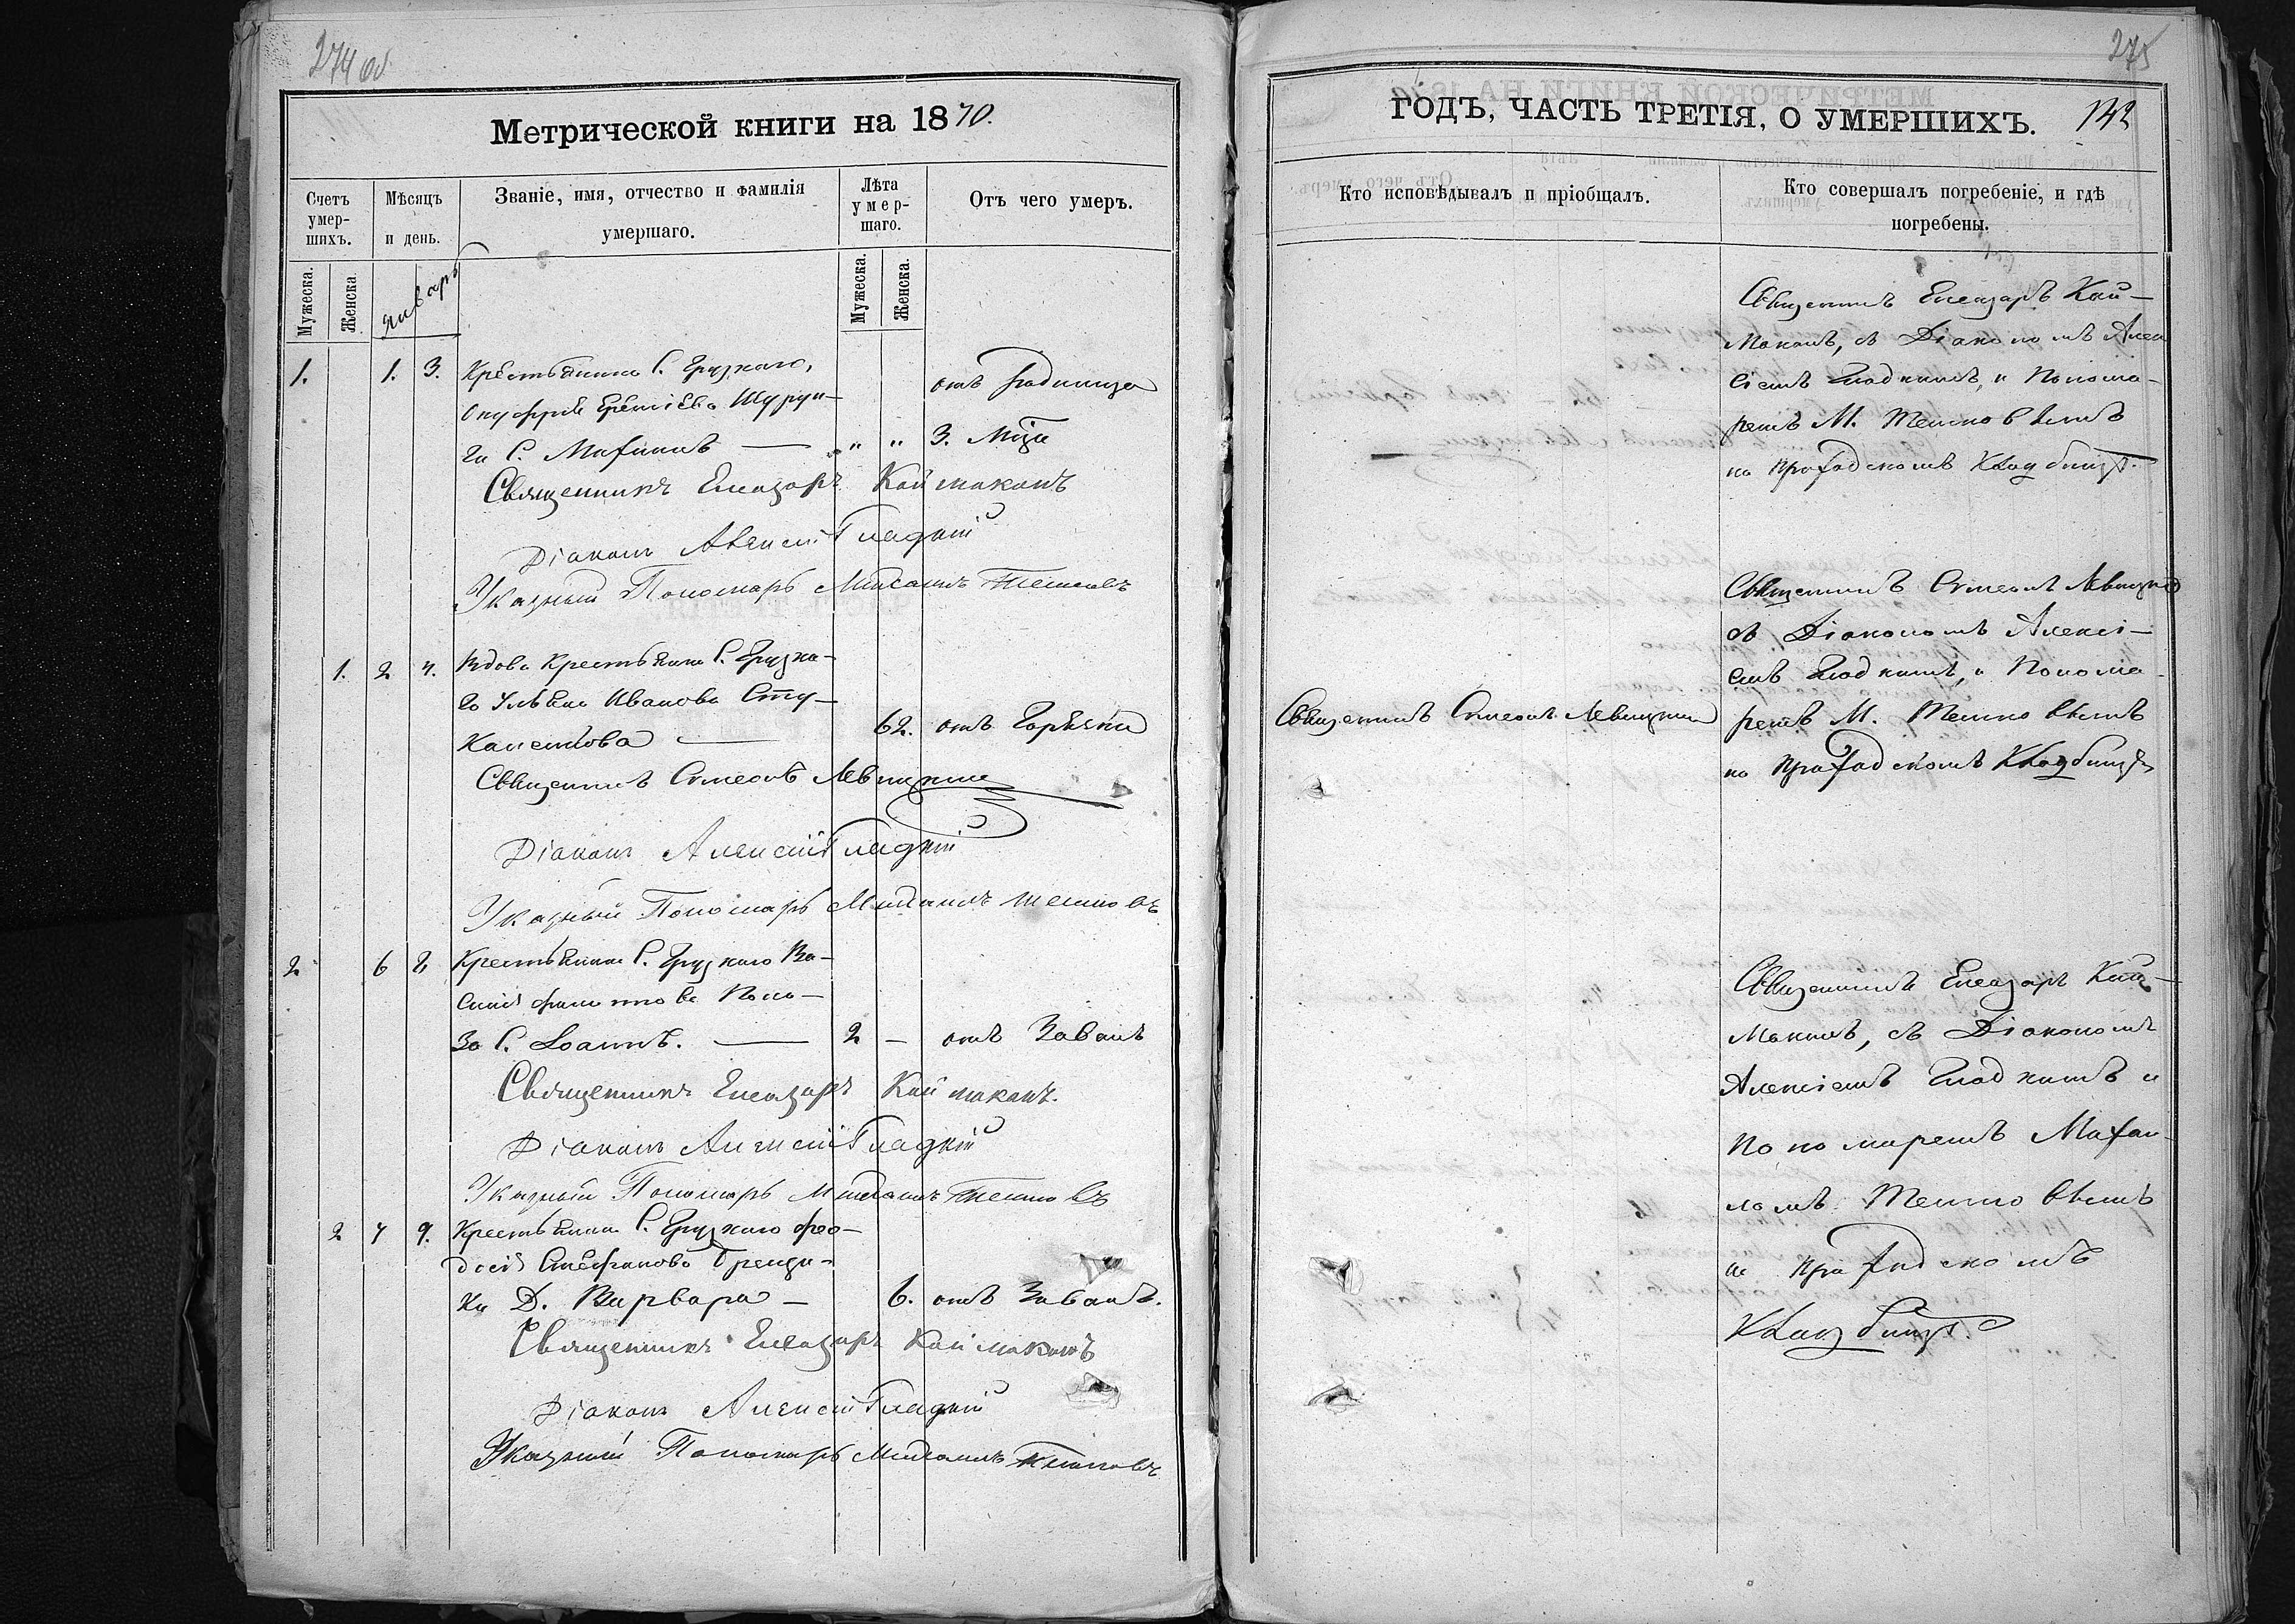 274 об
Метрической книги на 1870.
Счетъ умер- шихъ.
Мѣсяцъ и день.
Званіе, имя, отчество и фамилія умершаго.
Лѣта умер- шаго.
Отъ чего умеръ.
Мужеска.
Женска
Январь
Мужеска.
Женска.
1. 1. 3. Крестьянина С. Грузкаго,
Онуфрія Ерметіева Шурун- отъ Родимца
га С. Михаилъ — „ „ 3. Мца
Священникъ Елеазаръ Каймаканъ
Діаконъ Алексій Гладкій
Указный Пономарь Михаилъ Темновъ
1. 2 4. Вдова Крестьянка С. Грузка-
го Ульяна Иванова Сту-
канемкова — 62. отъ Горячки
Священникъ Симеонъ Левицкій
Діаконъ Алексій Гладкій
Указный Пономарь Михаилъ Темновъ
2 6 8 Крестьянина С. Грузкаго Ва-
силія Филиппова Поно-
За С. Іоаннъ. — 2 — отъ Завалъ
Священникъ Елеазаръ Каймаканъ.
Діаконъ Алексій Гладкій
Указный Пономарь Михаилъ Темновъ
2 7 9. Крестьянина С. Грузкаго Фео-
досія Стефанова
ки Д. Варвара — 6. отъ Завалъ.
Священникъ Елеазаръ Каймаканъ
Діаконъ Алексій Гладкій
Указный Пономарь Михаилъ Темновъ
275
ГОДЪ, ЧАСТЬ ТРЕТІЯ, О УМЕРШИХЪ. 142
Кто исповѣдывалъ и пріобщалъ.
Кто совершалъ погребеніе, и гдѣ погребены.
Священникъ Елеазаръ Кай-
маканъ, съ Діакономъ Алек
сіемъ Гладкимъ, и Понома-
ремъ М. Темновымъ
на приходскомъ Кладбищѣ.
Священникъ Симеонъ Левицкій
съ Діакономъ Алексі-
емъ Гладкимъ, и Понома-
Священникъ Симеонъ Левицкій ремъ М. Темновымъ
на приходскомъ Кладбищѣ
Священникъ Елеазаръ Кай-
маканъ, съ Діакономъ
Алексіемъ Гладкимъ и
Пономаремъ Михаи-
ломъ Темновымъ
на приходскомъ
Кладбищѣ.